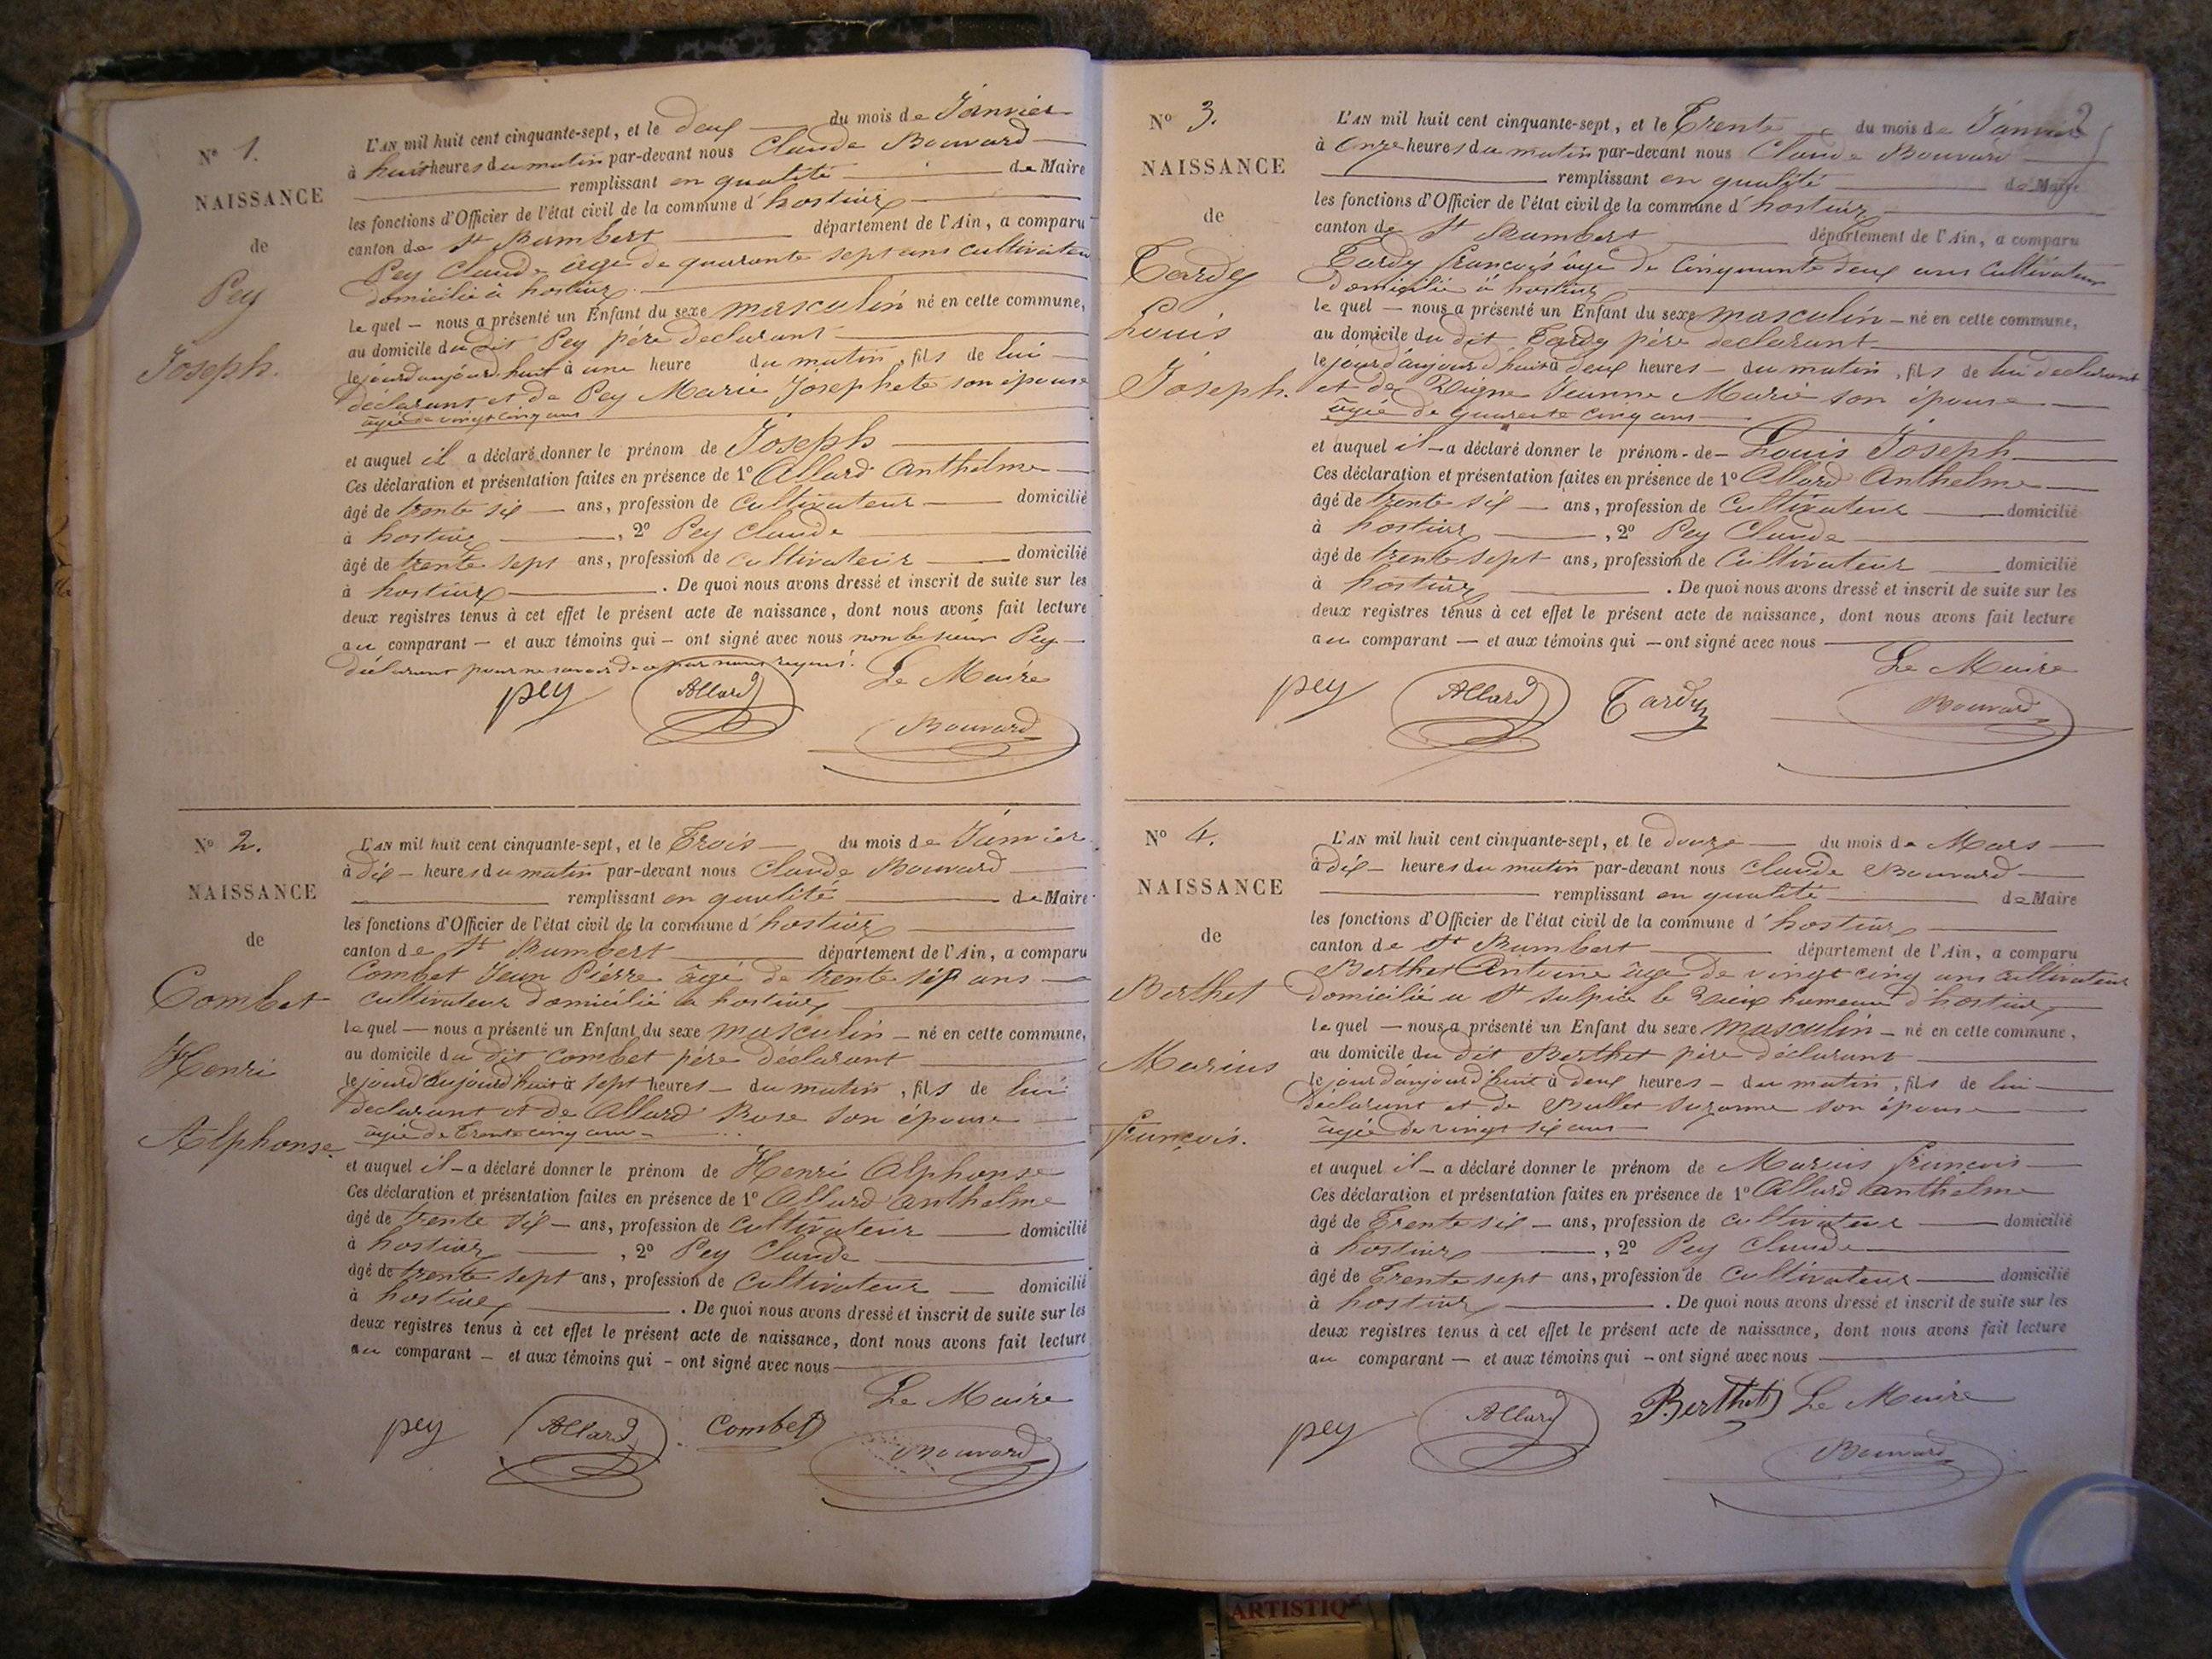 N° 1.
NAISSANCE
de
Pey
Joseph.
L'AN mil huit cent cinquante-sept, et le deux du mois de Janvier
à huit heures du matin par-devant nous Claude Bouvard
remplissant en qualité de Maire
les fonctions d'Officier de l'état civil de la commune d'hostiaz
canton de St Rambert département de l'Ain, a comparu
Pey Claude âgé de quarante sept ans cultivateur
domicilié à hostiaz
le quel — nous a présenté un Enfant du sexe masculin né en cette commune,
au domicile du dit Pey père déclarant
le jourd'aujourd'huit à une heure du matin, fils de lui
déclarant et de Pey Marie Josephete son épouse
âgée de vingt cinq ans
et auquel il a déclaré donner le prénom de Joseph
Ces déclaration et présentation faites en présence de 1° Allard Anthelme
âgé de trente six — ans, profession de Cultivateur domicilié
à hostiaz , 2° Pey Claude
âgé de trente sept ans, profession de cultivateur domicilié
à hostiaz . De quoi nous avons dressé et inscrit de suite sur les
deux registres tenus à cet effet le présent acte de naissance, dont nous avons fait lecture
au comparant — et aux témoins qui — ont signé avec nous non le sieur Pey
déclarant pour ne savoir de ce par nous requis.
Le Maire
pey Allard Bouvard
N° 2.
NAISSANCE
de
Combet
Henri
Alphonse.
L'AN mil huit cent cinquante-sept, et le Trois du mois de Janvier
à dix — heures du matin par-devant nous Claude Bouvard
remplissant en qualité de Maire
les fonctions d'Officier de l'état civil de la commune d'hostiaz
canton de St Rambert département de l'Ain, a comparu
Combet Jean Pierre âgé de trente sept ans
cultivateur domicilié à hostiaz
le quel — nous a présenté un Enfant du sexe masculin — né en cette commune,
au domicile du dit Combet père déclarant
le jourd'aujourd'huit à sept heures — du matin, fils de lui
déclarant et de Allard Rose son épouse
âgée de Trente cinq ans
et auquel il — a déclaré donner le prénom de Henri Alphonse
Ces déclaration et présentation faites en présence de 1° Allard Anthelme
âgé de trente six — ans, profession de Cultivateur domicilié
à hostiaz , 2° Pey Claude
âgé de trente sept ans, profession de Cultivateur domicilié
à hostiaz . De quoi nous avons dressé et inscrit de suite sur les
deux registres tenus à cet effet le présent acte de naissance, dont nous avons fait lecture
au comparant — et aux témoins qui — ont signé avec nous
Le Maire
pey Allard Combet Bouvard
N° 3.
NAISSANCE
de
Tardy
Louis
Joseph.
2
L'AN mil huit cent cinquante-sept, et le Trente du mois de Janvier
à Onze heures du matin par-devant nous Claude Bouvard
remplissant en qualité de Maire
les fonctions d'Officier de l'état civil de la commune d'hostiaz
canton de St Rambert département de l'Ain, a comparu
Tardy françois âgé de Cinquante deux ans Cultivateur
domicilié à hostiaz
le quel — nous a présenté un Enfant du sexe masculin — né en cette commune,
au domicile du dit Tardy père déclarant
le jour d'aujourd'huit à deux heures — du matin, fils de lui déclarant
et de Jeanne Marie son épouse
âgée de quarante cinq ans
et auquel il — a déclaré donner le prénom - de — Louis Joseph
Ces déclaration et présentation faites en présence de 1° Allard Anthelme
âgé de trente six — ans, profession de Cultivateur domicilié
à hostiaz , 2° Pey Claude
âgé de trente sept ans, profession de Cultivateur domicilié
à hostiaz . De quoi nous avons dressé et inscrit de suite sur les
deux registres tenus à cet effet le présent acte de naissance, dont nous avons fait lecture
au comparant — et aux témoins qui — ont signé avec nous
Le Maire
pey Allard Tardy Bouvard
N° 4.
NAISSANCE
de
Berthet
Marius
françois.
L'AN mil huit cent cinquante-sept, et le douze du mois de Mars
à dix — heures du matin par-devant nous Claude Bouvard
remplissant en qualité de Maire
les fonctions d'Officier de l'état civil de la commune d'hostiaz
canton de St Rambert département de l'Ain, a comparu
Berthet Antoine âgé de vingt cinq ans cultivateur
domicilié à St Sulpice le Vieux hameau d'hostiaz
le quel — nous a présenté un Enfant du sexe masculin — né en cette commune,
au domicile du dit Berthet père déclarant
le jour d'aujourd'huit à deux heures — du matin, fils de lui
déclarant et de Ballet Suzanne son épouse
âgée de vingt six ans
et auquel il — a déclaré donner le prénom de Marius françois
Ces déclaration et présentation faites en présence de 1° Allard Anthelme
âgé de Trente six — ans, profession de cultivateur domicilié
à hostiaz , 2° Pey Claude
âgé de Trente sept ans, profession de Cultivateur domicilié
à hostiaz . De quoi nous avons dressé et inscrit de suite sur les
deux registres tenus à cet effet le présent acte de naissance, dont nous avons fait lecture
au comparant — et aux témoins qui — ont signé avec nous
pey Allard Berthet Le Maire
Bouvard
ARTISTIQ